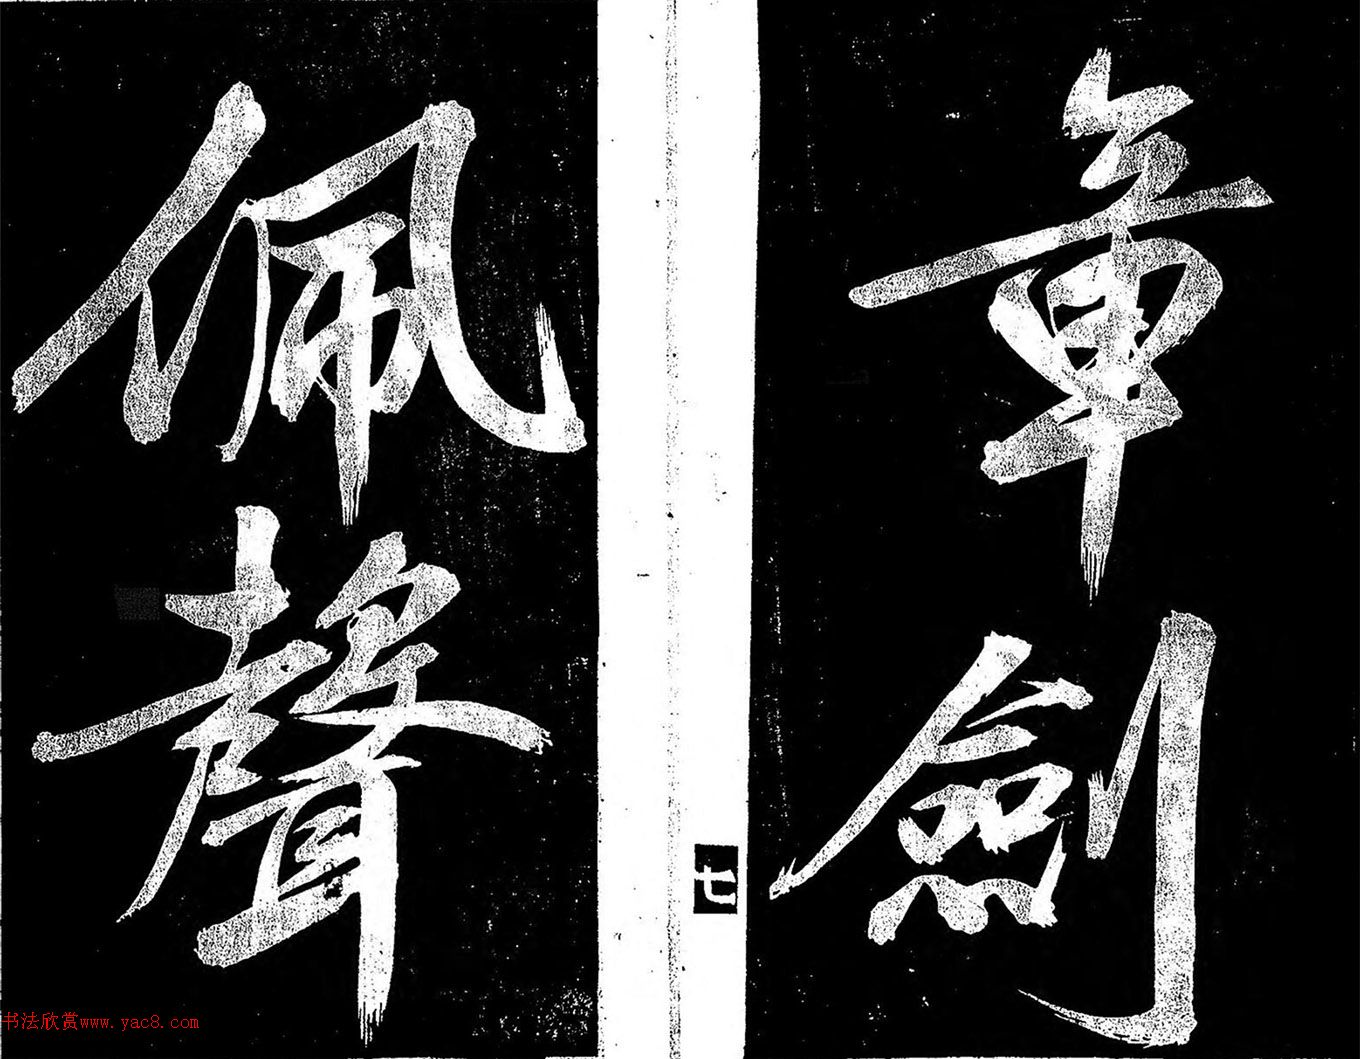 章劍
佩聲
七
书法欣赏www.yac8.com